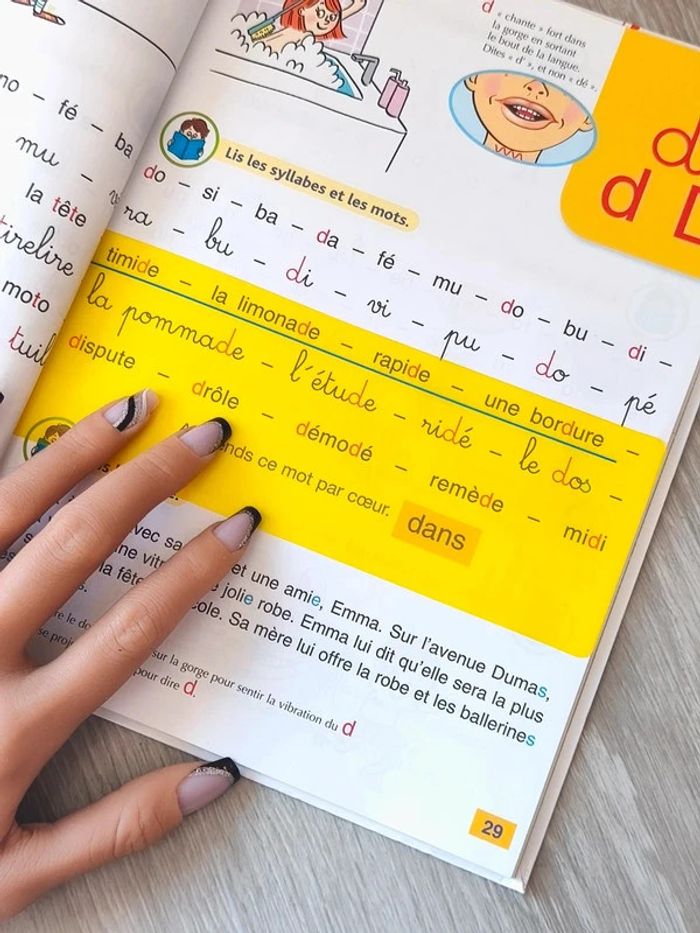 no – fé – ba
mu –
la tête
tirelire
moto
tuil
d « chante » fort dans
la gorge en sortant
le bout de la langue.
Dites « d' », et non « dé ».
d
d D
Lis les syllabes et les mots.
do – si – ba – da – fé – mu – do – bu – di –
ra – bu – di – vi – pu – do – pé
timide – la limonade – rapide – une bordure –
la pommade – l'étude – ridé – le dos –
dispute – drôle – démodé – remède – midi
ce mot par cœur. dans
avec sa et une amie, Emma. Sur l'avenue Dumas,
jolie robe. Emma lui dit qu'elle sera la plus
la fête Sa mère lui offre la robe et les ballerines
sur la gorge pour sentir la vibration du d
pour dire d.
29